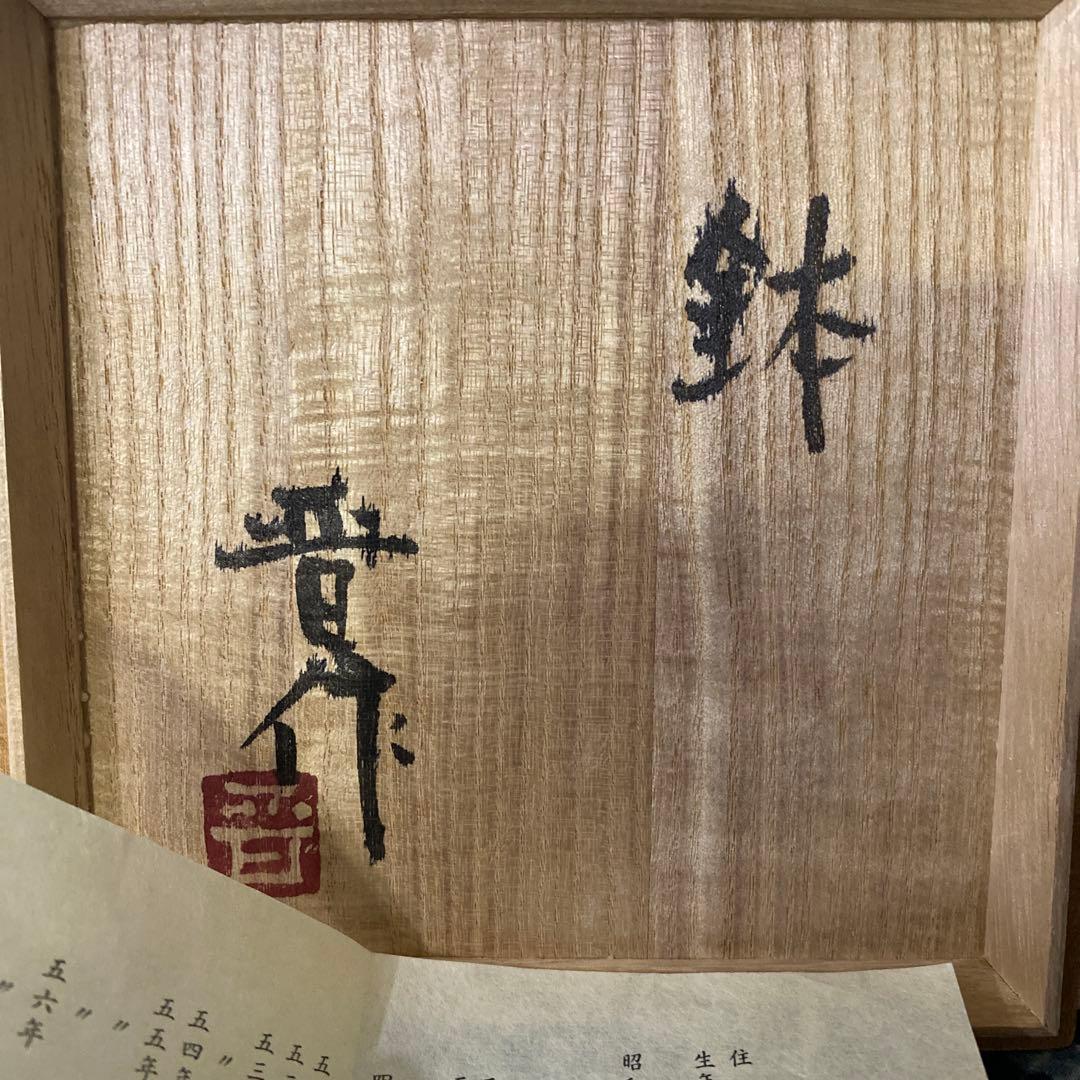 鉢
晋作
晋
住
生年
昭
四
五
五一
五三
〃
五四年
五五年
〃
〃
五六年
〃